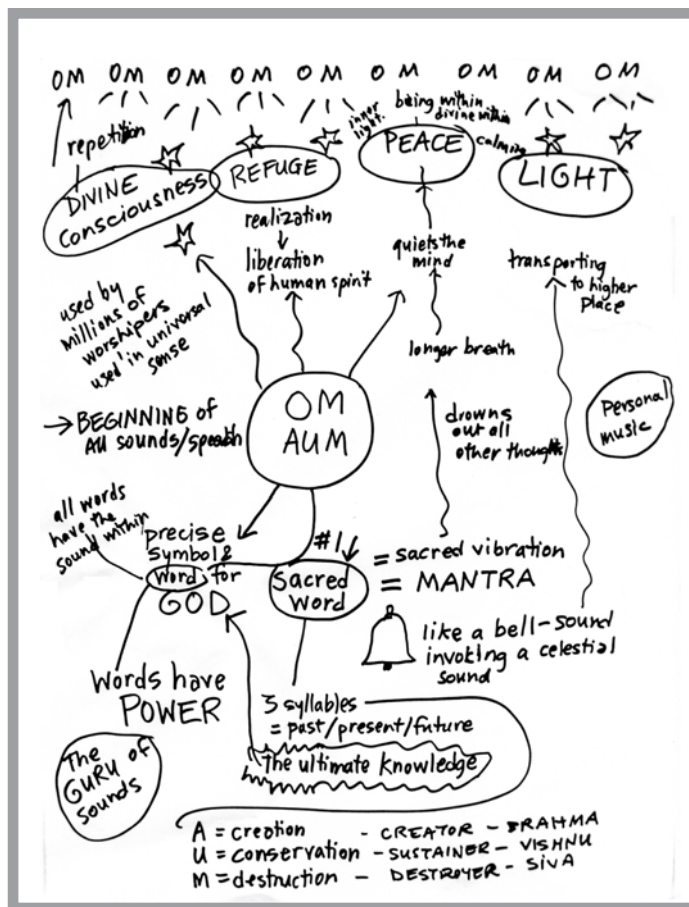 OM OM OM OM OM OM OM OM OM
repetition
DIVINE
Consciousness
REFUGE
inner
light.
being within
divine within
PEACE
calming
LIGHT
realization
liberation
of human spirit
quiets the
mind
transporting
to higher
place
used by
millions of
worshipers
used in universal
sense
longer breath
OM
AUM
→ BEGINNING of
All sounds/speech
drowns
out all
other thoughts
Personal
music
all words
have the
sound within
precise
symbol &
word for
GOD
#1
Sacred
word
= sacred vibration
= MANTRA
like a bell-sound
invoking a celestial
sound
Words have
POWER
3 syllables
= past/present/future
The ultimate knowledge
The
GURU of
sounds
A = creation - CREATOR - BRAHMA
U = conservation - SUSTAINER - VISHNU
M = destruction - DESTROYER - SIVA